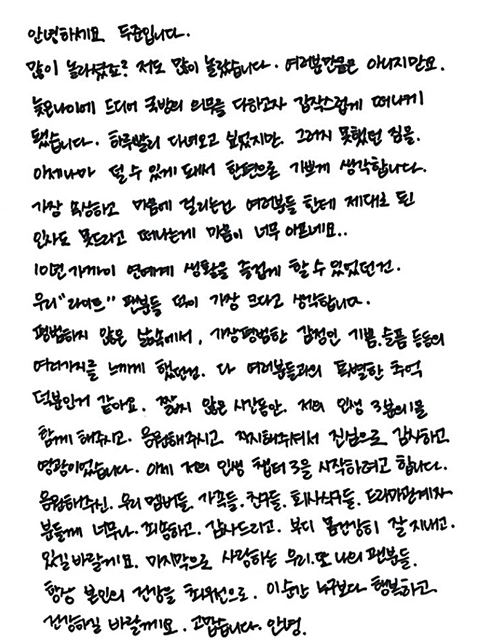 안녕하세요 두준입니다.
많이 놀라셨죠? 저도 많이 놀랐습니다. 여러분만큼은 아니지만요.
늦은나이에 드디어 국방의 의무를 다하고자 갑작스럽게 떠나게
됐습니다. 하루빨리 다녀오고 보았지만. 그러지 못했던 짐을.
이제나마 덜 수 있게 돼서 한편으로 기쁘게 생각합니다.
가장 속상하고 마음에 걸리는건 여러분들 한테 제대로 된
인사도 못드리고 떠나는게 마음이 너무 아프네요..
10년 가까이 연예계 생활을 즐겁게 할 수 있었던건.
우리 "라이트" 팬분들 덕이 가장 크다고 생각합니다.
평범하지 않은 삶속에서, 가장평범한 감정인 기쁨.슬픔 등등의
여러가지를 느끼게 했던건. 다 여러분들과의 특별한 추억
덕분인거 같아요. 짧지 않은 시간동안. 저의 인생 3분의1을
함께 해주시고. 응원해주시고 지지해주셔서 진심으로 감사하고
영광이었습니다. 이제 저의 인생 챕터3을 시작하려고 합니다.
응원해주신. 우리 멤버들. 가족들. 친구들. 회사식구들. 드라마관계자
분들께 너무나. 죄송하고. 감사드리고. 부디 몸건강히 잘 지내고.
있길 바랄게요. 마지막으로 사랑하는 우리.또 나의 팬분들.
항상 본인의 건강을 최우선으로. 이순간 누구보다 행복하고.
건강하길 바랄께요. 고맙습니다. 안녕.